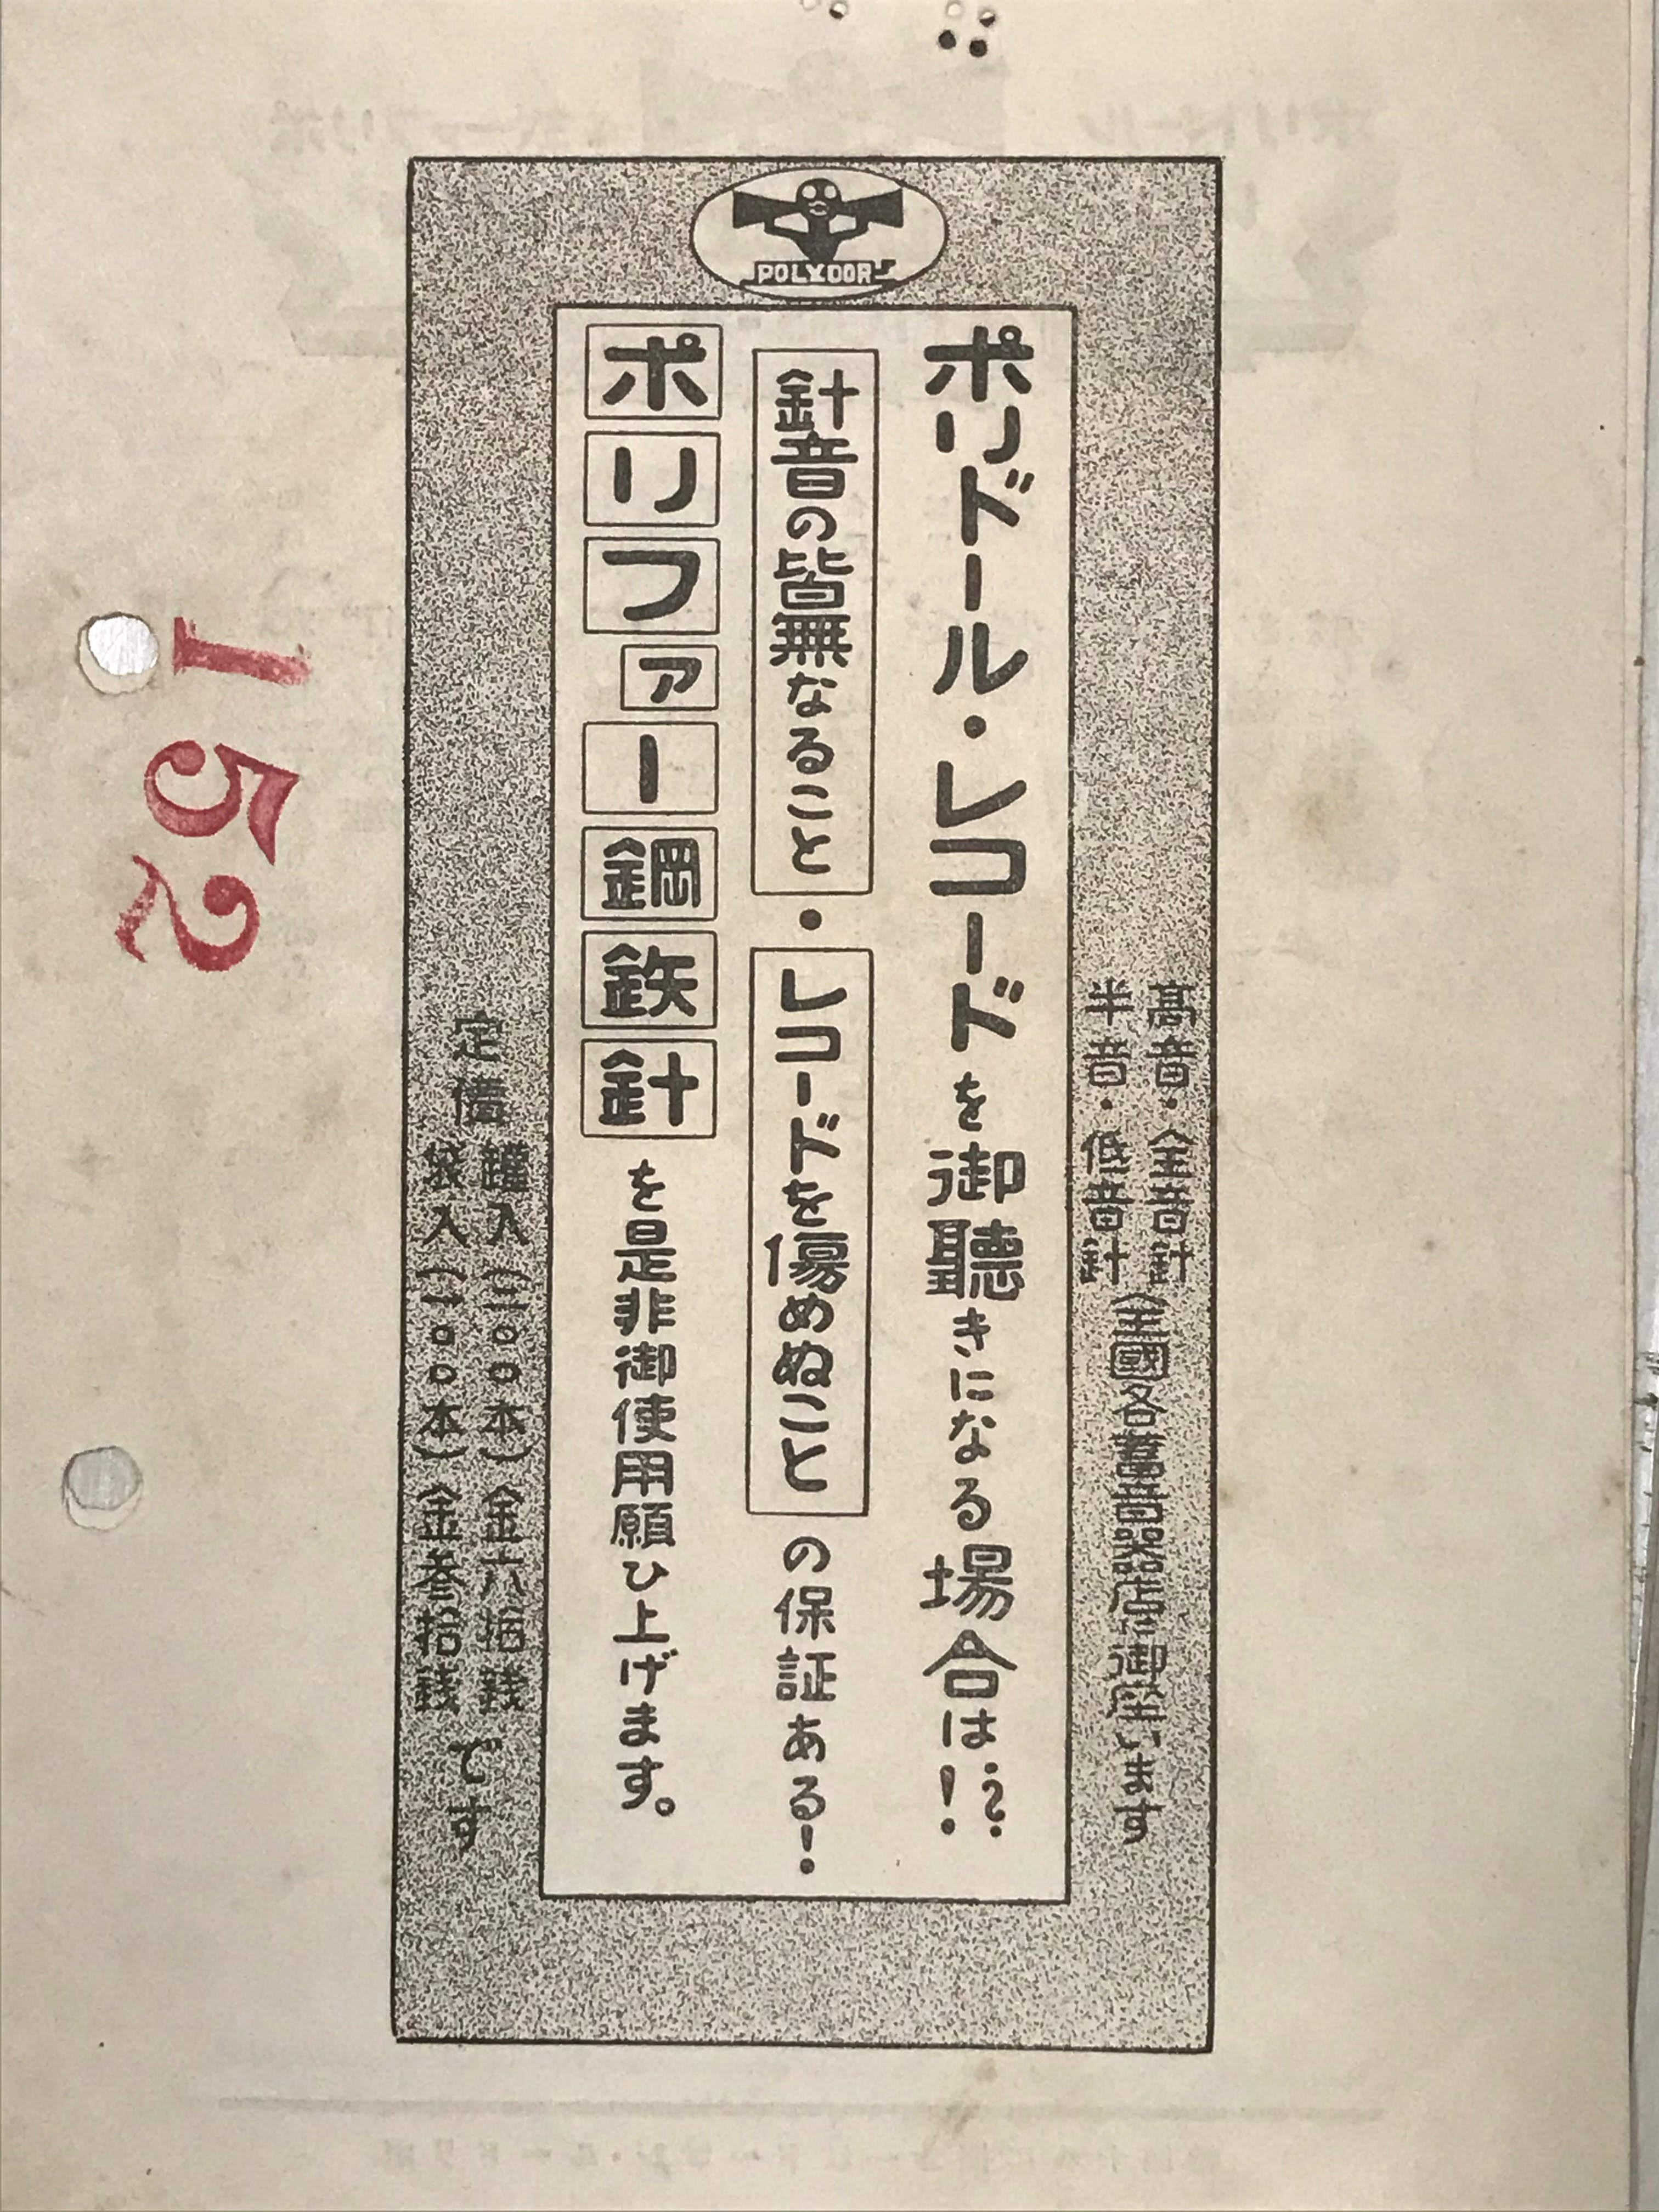 POLYDOR
高音・全音針
半音・低音針
全國各蓄音器店に御座います
ポリドール・レコードを御聽きになる場合は!?
針音の皆無なること・レコードを傷めぬことの保証ある!
ポリファー鋼鉄針を是非御使用願ひ上げます。
定價
罐入(二〇〇本)金六拾錢
袋入(一〇〇本)金参拾錢
です
152